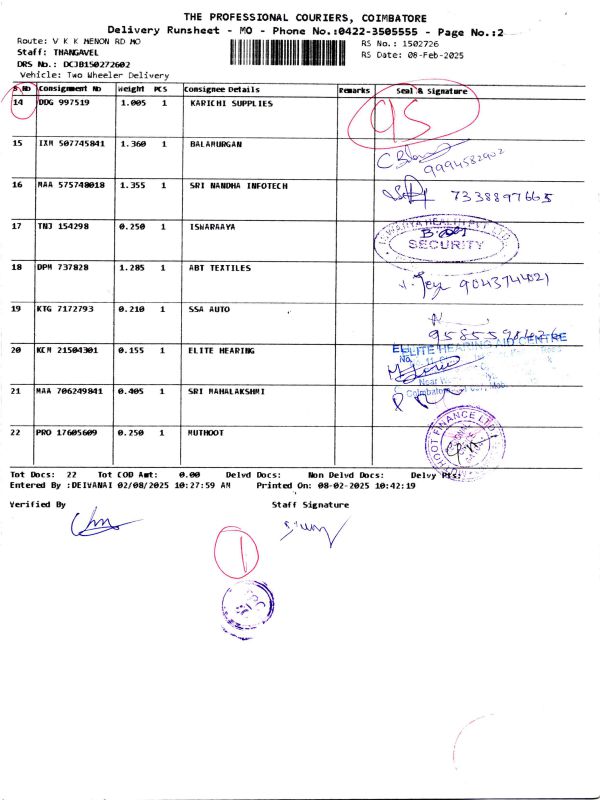 THE PROFESSIONAL COURIERS, COIMBATORE
Delivery Runsheet - MO - Phone No.:0422-3505555 - Page No.:2
Route: V K K MENON RD MO
RS No.: 1502726
Staff: THANGAVEL
RS Date: 08-Feb-2025
DRS No.: DCJB150272602
Vehicle: Two Wheeler Delivery
S No Consignment No Weight PCS Consignee Details Remarks Seal & Signature
14 DDG 997519 1.005 1 KARICHI SUPPLIES 95
15 IXM 507745841 1.360 1 BALAMURGAN
9994582902
16 MAA 575748018 1.355 1 SRI NANDHA INFOTECH 7338897665
17 TNJ 154298 0.250 1 ISWARAAYA
SECURITY
18 DPM 737828 1.285 1 ABT TEXTILES 9043744021
19 KTG 7172793 0.210 1 SSA AUTO
20 KCM 21504301 0.155 1 ELITE HEARING ELITE HEARING AID CENTRE
21 MAA 706249841 0.405 1 SRI MAHALAKSHMI Coimbatore
22 PRO 17605609 0.250 1 MUTHOOT FINANCE LTD
Tot Docs: 22 Tot COD Amt: 0.00 Delvd Docs: Non Delvd Docs: Delvy Prs:
Entered By :DEIVANAI 02/08/2025 10:27:59 AM Printed On: 08-02-2025 10:42:19
Verified By Staff Signature
1